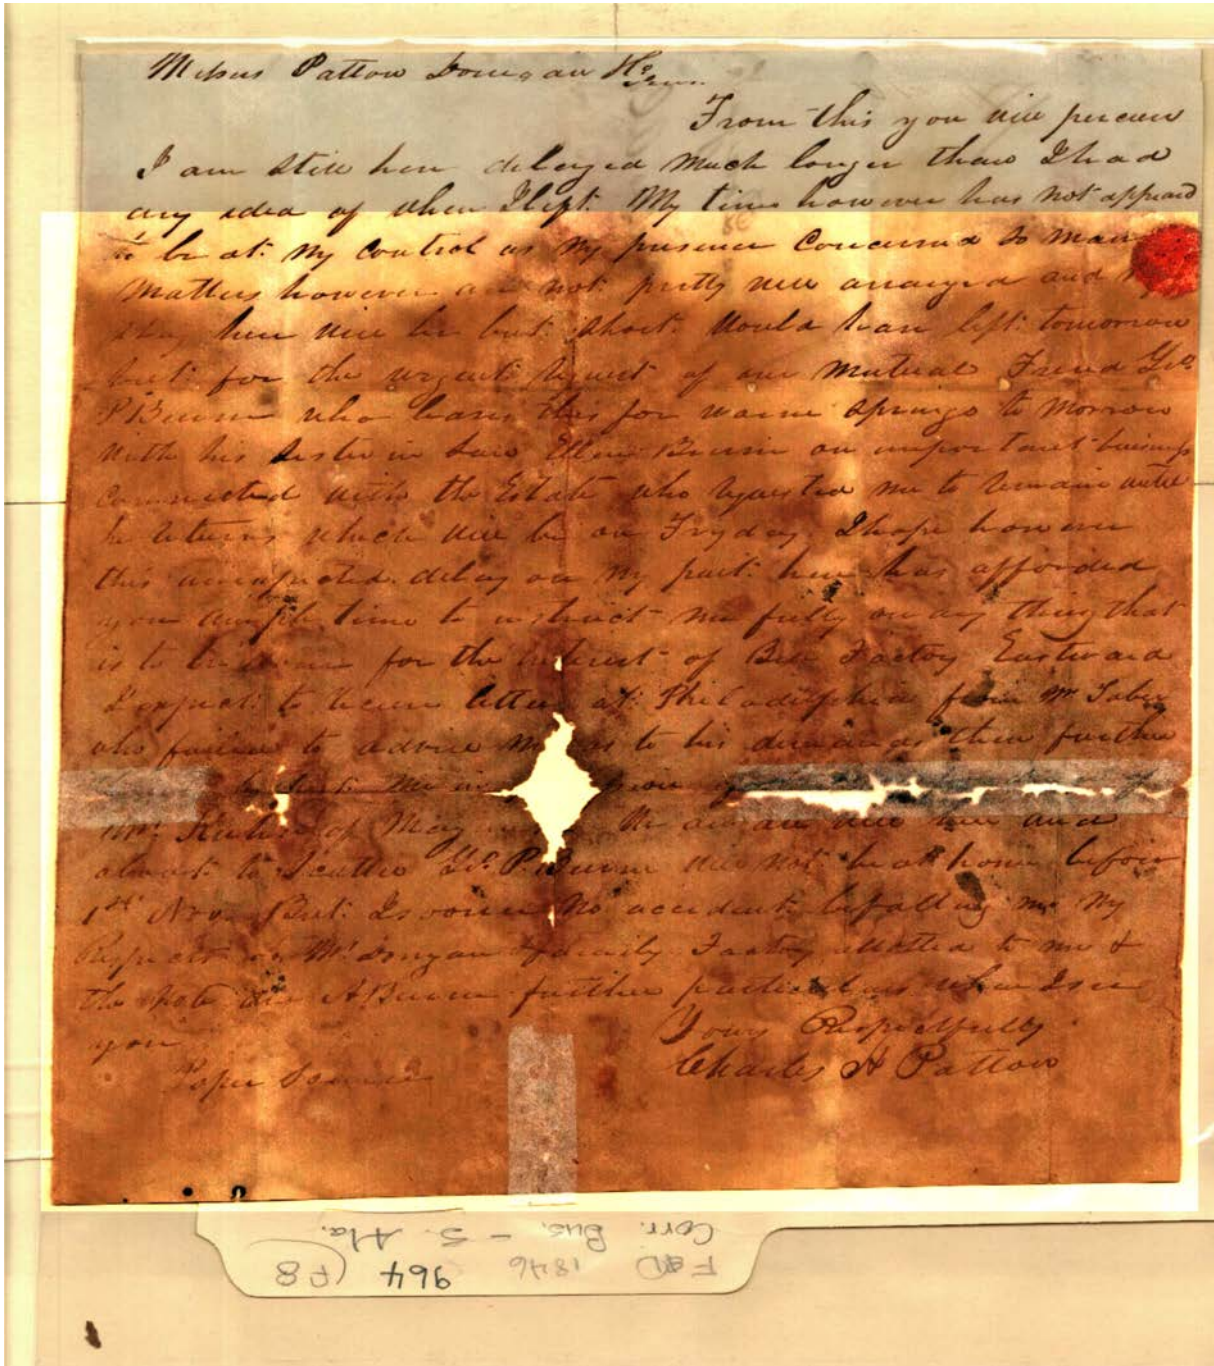 Messrs Patton Donegan & Co
From this you will perceive
I am still here delayed much longer than I had
any idea of when I left. My time however has not appeard
to be at my control as my presence concerned so many
matters however are not pretty well arranged and my
stay here will be but short. Would have left tomorrow
but for the urgent request of our mutual Friend Geo
P Beirne who leaves this for warm springs to morrow
with his sister in law Ellen Beirne on important business
connected with the Estate who requested me to remain until
he returns which will be on Fryday I hope however
this unexpected delay on my part here has afforded
you ample time to instruct me fully on any thing that
is to be done for the interest of Bell Factory Eastward
I expect to receive letter at Philadelphia from Mr Taber
who failed to advise me as to his demands then further
me in
Mr of May the are all here and
about to scatter Geo P. Beirne will not be at home before
1st Nov. But I sooner no accident befalling me My
Respects to Mr Donegan & family Factory allotted to me &
the note A Beirne further particulars when I see
you
Yours Respectfully
Charles H Patton
Corr. Bus. - S. Ala.
F&D 1846 964 (F8)